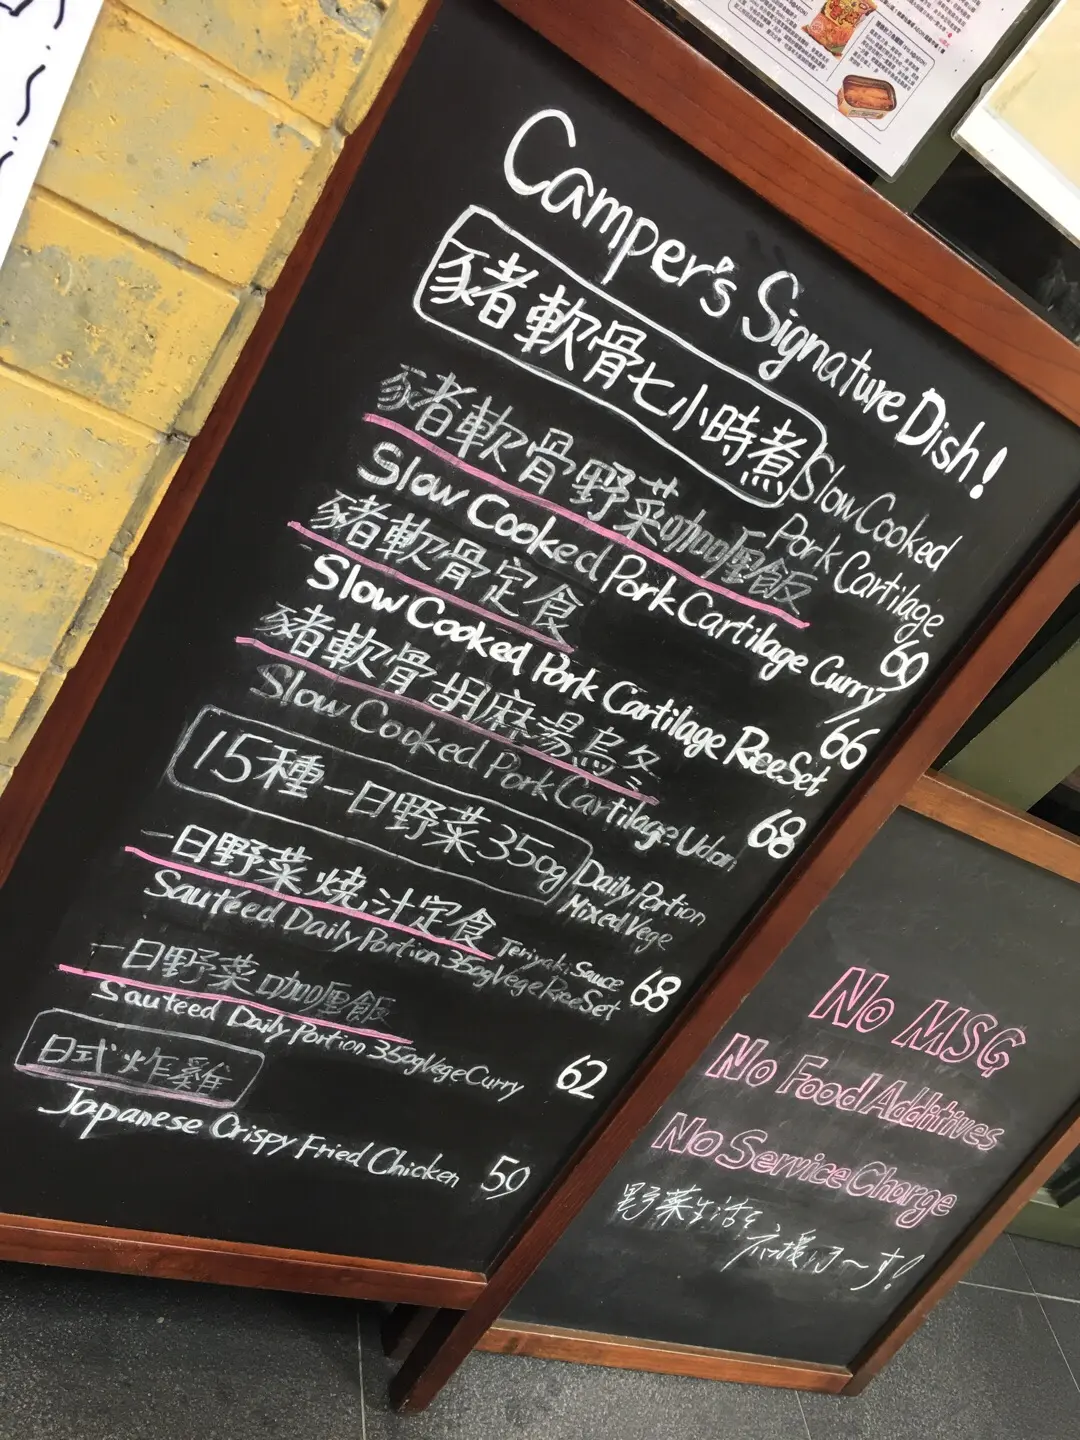 Camper's Signature Dish!
豬軟骨七小時煮 Slow Cooked Pork Cartilage
豬軟骨野菜咖喱飯
Slow Cooked Pork Cartilage Curry 60
豬軟骨定食
Slow Cooked Pork Cartilage Rice Set 66
豬軟骨胡麻湯烏冬
Slow Cooked Pork Cartilage Udon 68
15種一日野菜350g Daily Portion Mixed Vege
一日野菜燒汁定食 Teriyaki Sauce
Sautéed Daily Portion 350g Vege Rice Set 68
一日野菜咖喱飯
Sauteed Daily Portion 350g Vege Curry 62
日式炸雞
Japanese Crispy Fried Chicken 50
No MSG
No Food Additives
No Service Charge
野菜生活を
応援